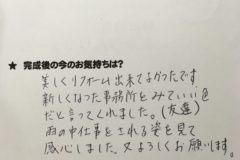 ★ 完成後の今のお気持ちは?
美しくリフォーム出来てよかったです
新しくなった事務所をみていい色
だと言ってくれました。(友達)
雨の中仕事をされる姿を見て
感心しました。又よろしくお願います。